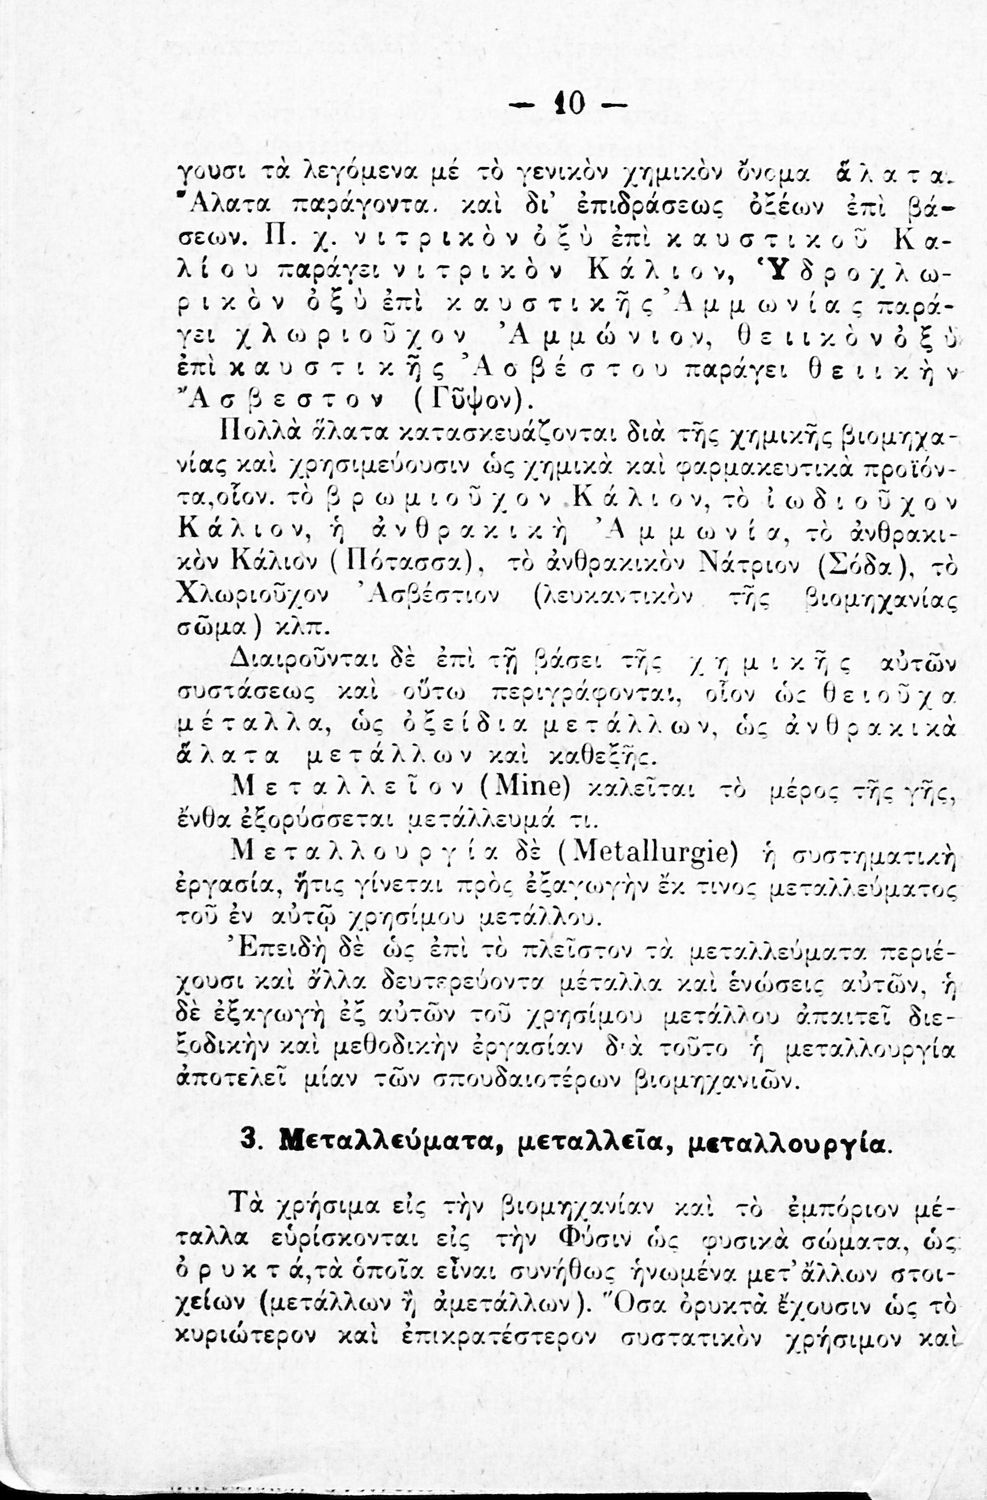 — 10 —
γουσι τὰ λεγόμενα μέ τὸ γενικὸν χημικὸν ὄνομα ἅλατα.
Ἅλατα παράγονται καὶ δι᾽ ἐπιδράσεως ὀξέων ἐπὶ βά-
σεων. Π. χ. νιτρικὸν ὀξὺ ἐπὶ καυστικοῦ Κα-
λίου παράγει νιτρικὸν Κάλιον, Ὑδροχλω-
ρικὸν ὀξὺ ἐπὶ καυστικῆς Ἀμμωνίας παρά-
γει χλωριοῦχον Ἀμμώνιον, θειικὸν ὀξὺ
ἐπὶ καυστικῆς Ἀσβέστου παράγει θειικὴν
Ἄσβεστον (Γῦψον).
Πολλὰ ἅλατα κατασκευάζονται διὰ τῆς χημικῆς βιομηχα-
νίας καὶ χρησιμεύουσιν ὡς χημικὰ καὶ φαρμακευτικὰ προϊόν-
τα, οἷον. τὸ βρωμιοῦχον Κάλιον, τὸ ἰωδιοῦχον
Κάλιον, ἡ ἀνθρακικὴ Ἀμμωνία, τὸ ἀνθρακι-
κὸν Κάλιον (Πότασσα), τὸ ἀνθρακικὸν Νάτριον (Σόδα), τὸ
Χλωριοῦχον Ἀσβέστιον (λευκαντικὸν τῆς βιομηχανίας
σῶμα) κλπ.
Διαιροῦνται δὲ ἐπὶ τῇ βάσει τῆς χημικῆς αὐτῶν
συστάσεως καὶ οὕτω περιγράφονται, οἷον ὡς θειοῦχα
μέταλλα, ὡς ὀξείδια μετάλλων, ὡς ἀνθρακικὰ
ἅλατα μετάλλων καὶ καθεξῆς.
Μεταλλεῖον (Mine) καλεῖται τὸ μέρος τῆς γῆς,
ἔνθα ἐξορύσσεται μετάλλευμά τι.
Μεταλλουργία δὲ (Metallurgie) ἡ συστηματικὴ
ἐργασία, ἥτις γίνεται πρὸς ἐξαγωγὴν ἔκ τινος μεταλλεύματος
τοῦ ἐν αὐτῷ χρησίμου μετάλλου.
Ἐπειδὴ δὲ ὡς ἐπὶ τὸ πλεῖστον τὰ μεταλλεύματα περιέ-
χουσι καὶ ἄλλα δευτερεύοντα μέταλλα καὶ ἑνώσεις αὐτῶν, ἡ
δὲ ἐξαγωγὴ ἐξ αὐτῶν τοῦ χρησίμου μετάλλου ἀπαιτεῖ διε-
ξοδικὴν καὶ μεθοδικὴν ἐργασίαν διὰ τοῦτο ἡ μεταλλουργία
ἀποτελεῖ μίαν τῶν σπουδαιοτέρων βιομηχανιῶν.
3. Μεταλλεύματα, μεταλλεῖα, μεταλλουργία.
Τὰ χρήσιμα εἰς τὴν βιομηχανίαν καὶ τὸ ἐμπόριον μέ-
ταλλα εὑρίσκονται εἰς τὴν Φύσιν ὡς φυσικὰ σώματα, ὡς
ὀρυκτά, τὰ ὁποῖα εἶναι συνήθως ἡνωμένα μετ᾽ ἄλλων στοι-
χείων (μετάλλων ἢ ἀμετάλλων). Ὅσα ὀρυκτὰ ἔχουσιν ὡς τὸ
κυριώτερον καὶ ἐπικρατέστερον συστατικὸν χρήσιμον καὶ